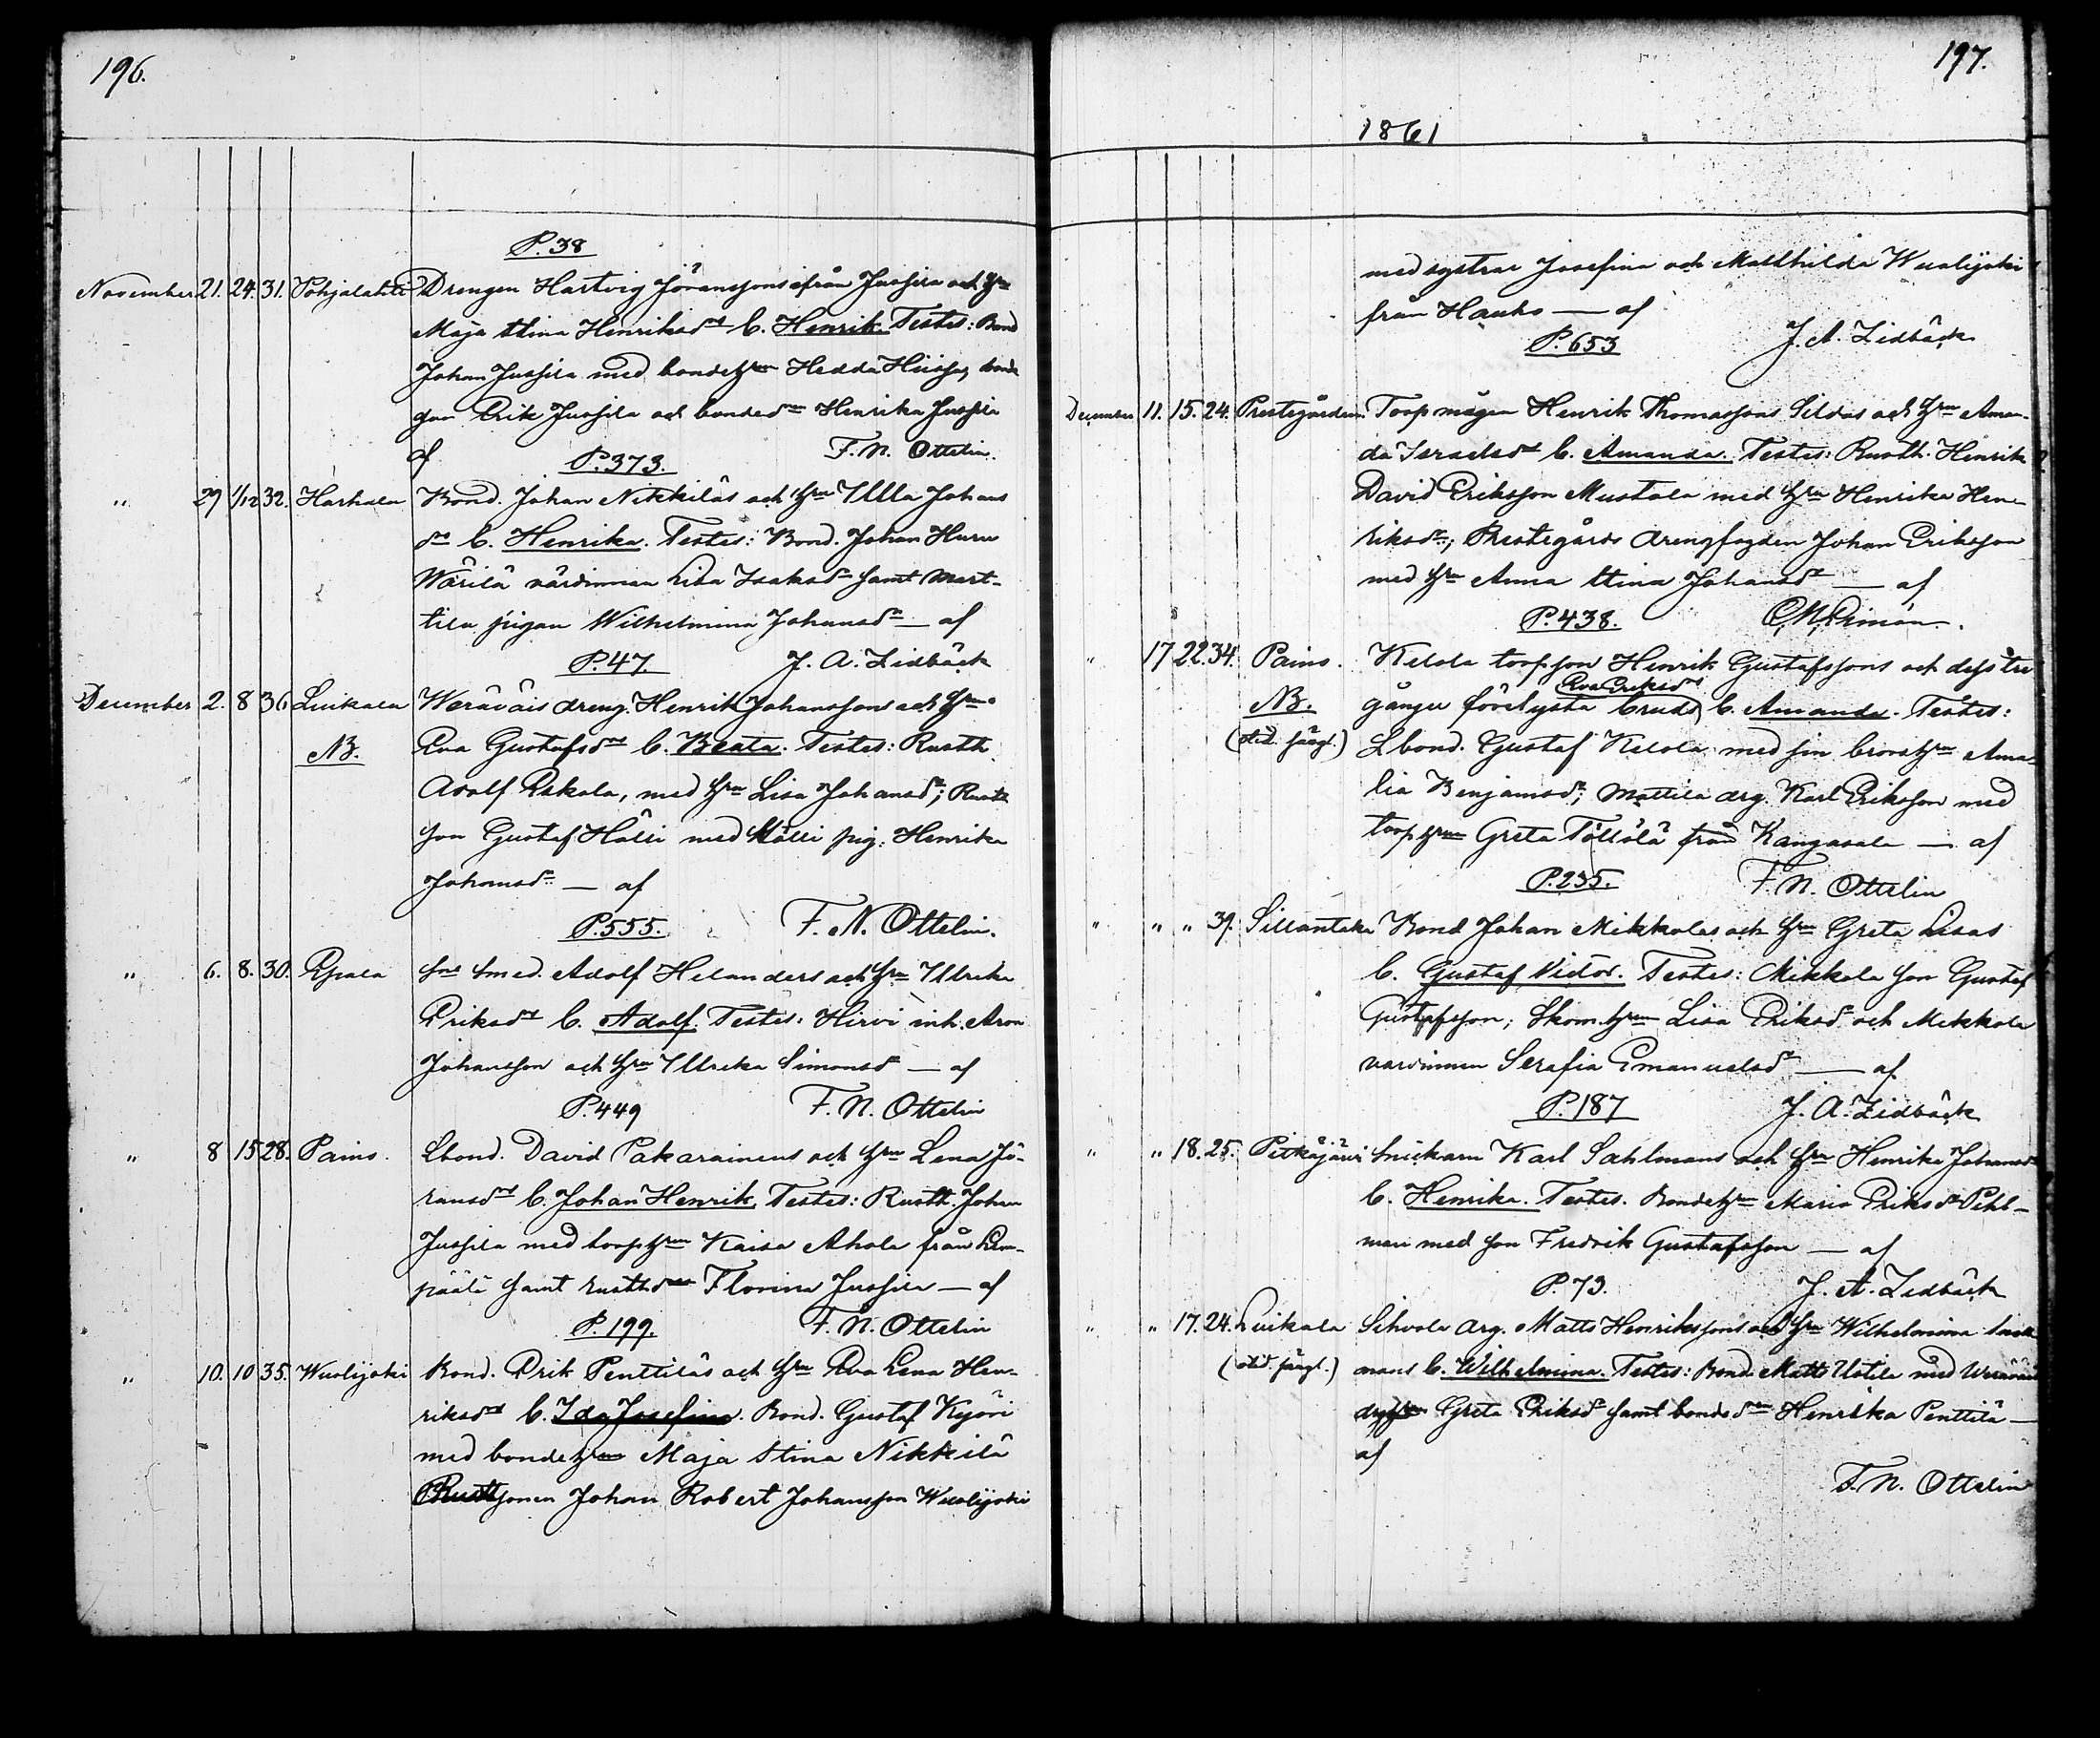 196.
P. 38
November 21. 24. 31. Pohjalahti Drengen Hartvig Göransjons ifrån Jussila och hru
Maja Stina Henriksdr b. Henrik Testes: Bond
Johan Jussila med bondehrun Hedda Hiisja, bonde
gon Erik Jussila och bondedrn Henrika Jussila
af F. N. Ottelin.
P. 373.
" 29 1/12 32. Harhala Bond. Johan Nikkiläs och hru Ulla Johans
dr b. Henrika. Testes: Bond. Johan Huru
Wärilä värdinnan Lisa Isaksdr samt Mart-
tila pigan Wilhelmina Johansdr — af
P. 47. J. A. Lidbäck
December 2. 8 36 Luikala Weräväis dreng. Henrik Johanssons och hrus
NB. Eva Gustafsdrs b. Beata. Testes: Rusth.
Adolf Eskola, med hru Lisa Johansdr; Rusth
son Gustaf Hälli med Hälli pig. Henrika
Johansdr — af
P. 555. F. N. Ottelin.
" 6. 8. 30. Epala Smed. Adolf Helanders och hru Ulrika
Eriksdr b. Adolf. Testes: Hirvi inh. Aron
Johansson och hru Ulrika Simonsdr — af
P. 449 F. N. Ottelin
" 8 15 28. Paino. Lbond. David Pakarainens och hru Lena Jö-
ransdr b. Johan Henrik, Testes: Rusth. Johan
Jussila med torphrun Kaisa Ahola från Lem-
päälä samt rusthdrn Florina Jussila — af
P. 199. F. N. Ottelin
" 10. 10 35. Wuolijoki Bond. Erik Penttiläs och hru Eva Lena Hen-
riksdr b. Ida Josefina. Bond. Gustaf Kyöri
med bondehrun Maja Stina Nikkilä
Rusthsonen Johan Robert Johansson Wuolijoki
197.
1861
med systrar Josefina och Mathilda Wuolijoki
från Hauho — af
P. 653 J. A. Lidbäck
December 11. 15. 24. Prestegården. Torpmågen Henrik Thomassons Sildas och hru Aman-
da Israelsdr b. Amanda. Testes: Rusth. Henrik
David Eriksson Mustola med hru Henrika Hen-
riksdr; Prestegårds drengfogden Johan Eriksson
med hru Anna Stina Johansdr — af
P. 438.
" 17 22. 34. Paino. Kelola torpson Henrik Gustafssons och dess tre
Eva Eriksdrs
NB. gånger förelysta brud b. Amanda. Testes:
Lbond. Gustaf Kelola med sin brorshru Ama-
lia Benjamsdr; Mattila drg. Karl Eriksson med
torphrun Greta Töllölä från Kangasala — af
P. 235. F. N. Ottelin
" " " 39. Sillantaka Bond Johan Mikkolas och hru Greta Lisas
b. Gustaf Victor. Testes: Mikkola son Gustaf
Gustafsson; Skom.hrun Lisa Eriksdr och Mikkola
värdinnan Serafia Emanuelsdr — af
P. 187 J. A. Lidbäck
" " 18. 25. Pitkäjärvi Snickarn Karl Sahlmans och hru Henrika Johansdr
b. Henrika. Testes. Bondehrun Maria Eriksdr Pihl-
man med son Fredrik Gustafsson — af
P. 73. J. A. Lidbäck
" " 17. 24. Luikala Sihvola drg. Matts Henrikssons och hru Wilhelmina
b. Wilhelmina. Testes: Bond. Matts Uotila med
Greta Eriksdr samt bondedrn Henrika Penttilä —
af
F. N. Ottelin